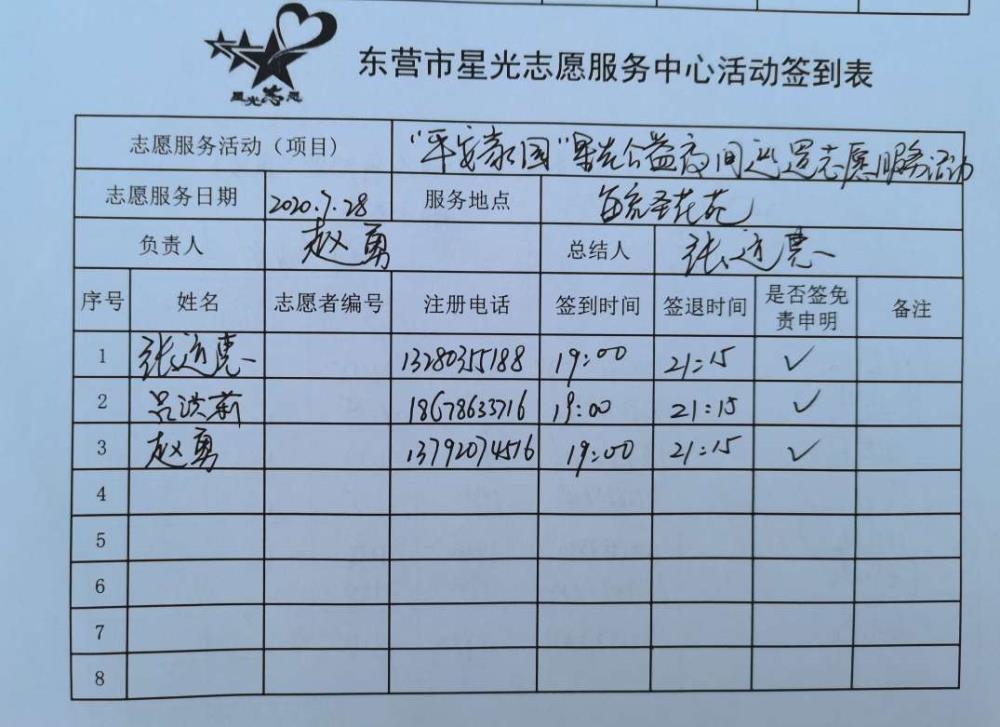 星光志愿
东营市星光志愿服务中心活动签到表
志愿服务活动（项目） “平安家园”星光公益夜间巡逻志愿服务活动
志愿服务日期 2020.7.28 服务地点 花苑
负责人 赵勇 总结人 张
序号 姓名 志愿者编号 注册电话 签到时间 签退时间 是否签免责申明 备注
1 张 13280355188 19:00 21:15 ✓
2 吕洪莉 18678633716 19:00 21:15 ✓
3 赵勇 13792074516 19:00 21:15 ✓
4
5
6
7
8